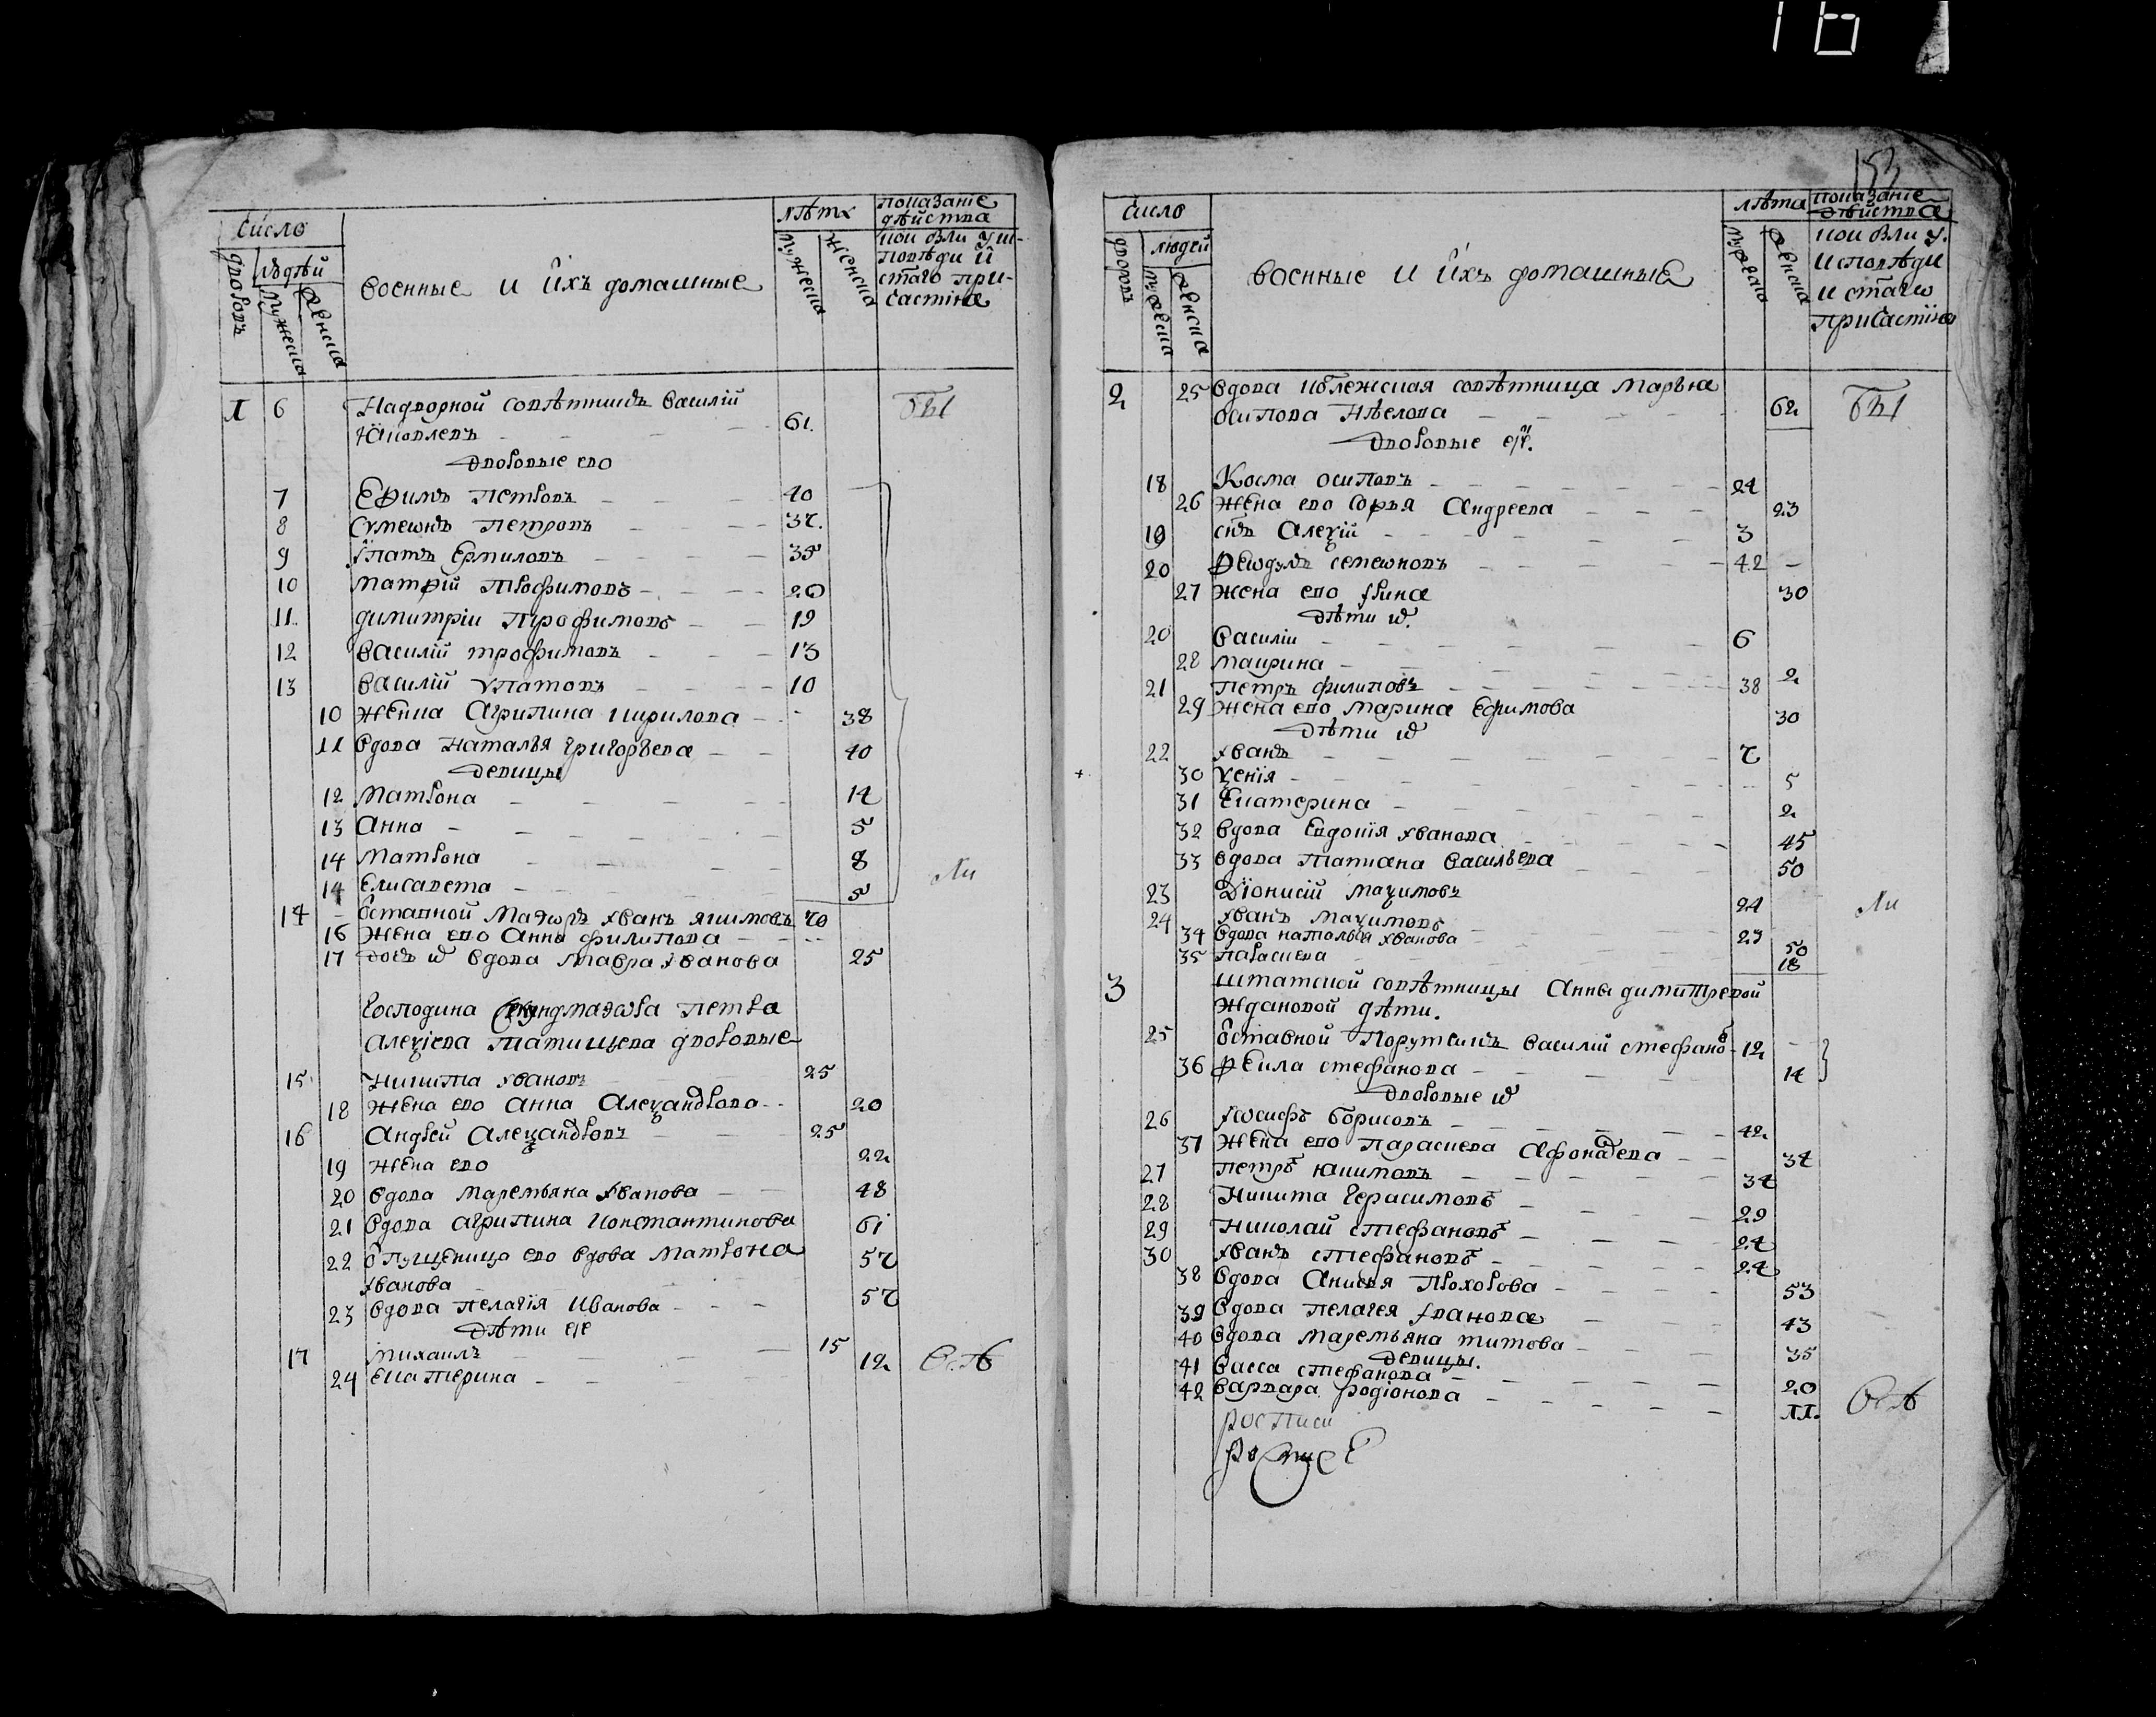 16
число
людей
дворовъ
мужеска
женска
военные и ихъ домашные
лѣта
мужеска
женска
показание
дѣиства
кои были у ис-
повѣди и
стаго при-
частия
1 6 Надворной совѣтникъ василий
Яковлевъ 61. Бы
дворовые ево
7 Ефимъ петровъ 40
8 Сумеѡнъ петровъ 37.
9 Ѵпатъ Ермиловъ 35
10 матфий трофимовъ 20
11. димитрии трофимовъ 19
12 василий трофимовъ 13
13 василий Ѵпатовъ 10
10 женка Агрипина кирилова 38
11 вдова наталья григорьева 40
девицы
12 матрона 14
13 анна 5
14 матрона 8
14 Елисавета 5 Ли
14 Ѿставной маэоръ Иванъ якимовъ 70
16 жена ево анна филипова
17 дочь ихъ вдова мавра Иванова 25
господина секундмаэора петра
алеѯиева татищева дворовые
15 никита Ивановъ 25
18 жена ево анна Алеѯандрова 20
16 Андрей Алеѯандровъ 25
19 жена ево 22
20 вдова маремьяна Иванова 48
21 вдова агрипина константинова 61
22 Ѿпущеница ево вдова матрона 57
Иванова
23 вдова пелагия Иванова 57
дѣти ее
17 михаилъ 15
24 екатерина 12
153
число
людей
дворовъ
мужеска
женска
военные и ихъ домашные
лѣта
мужеска
женска
показание
дѣиства
кои были у
исповѣди
и стагѡ
причастия
2 25 вдова колежская совѣтница марья
осипова нѣелова 62 Бы
дворовые ея.
18 Косма осиповъ 24
26 жена ево софья андреева 23
19 снъ алеѯий 3
20 Ѳеѡдулъ семеѡновъ 42
27 жена ево Ирина 30
дѣти ихъ.
20 василии 6
28 маирина 2
21 петръ филиповъ 38
29 жена ево марина ефимова 30
дѣти ихъ
22 Иванъ 7
30 ѯения 5
31 Екатерина 2
32 вдова евдокия Иванова 45
33 вдова татиана васильева 50
23 Дионисий маѯимовъ 24 Ли
24 Иванъ маѯимовъ 23
34 вдова наталья Иванова 50
35 параскева 18
3 штатской совѣтницы анны димитревой
ждановой дѣти.
25 Ѿставной порутчикъ василий стефановъ 12
36 Ѳекла стефанова 14
дворовые ихъ
26 Иѡсифъ борисовъ 42
37 жена ево параскева афонасева 34
27 петръ якимовъ 34
28 никита герасимовъ 29
29 николай стефановъ 24
30 Иванъ стефановъ 24
38 вдова анисья прохорова 53
39 вдова пелагея Иванова 43
40 вдова маремьяна титова 35
девицы.
41 васса стефанова 20
42 варвара родионова 11.
росписи